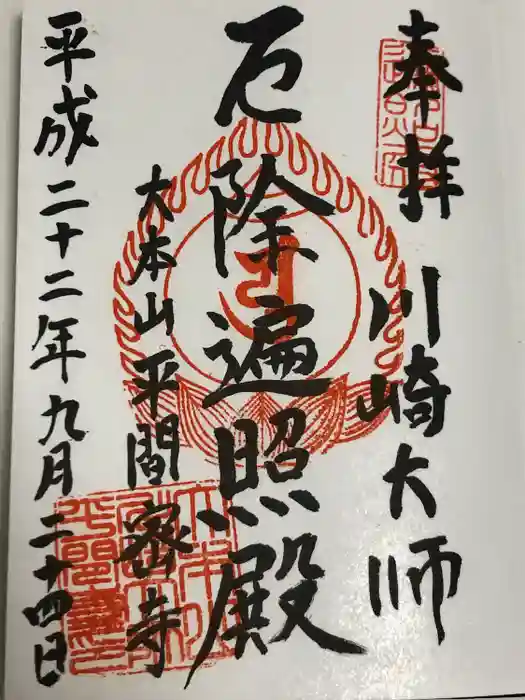 奉拝
川崎大師
厄除遍照殿
大本山平間密寺
平成二十二年九月二十四日